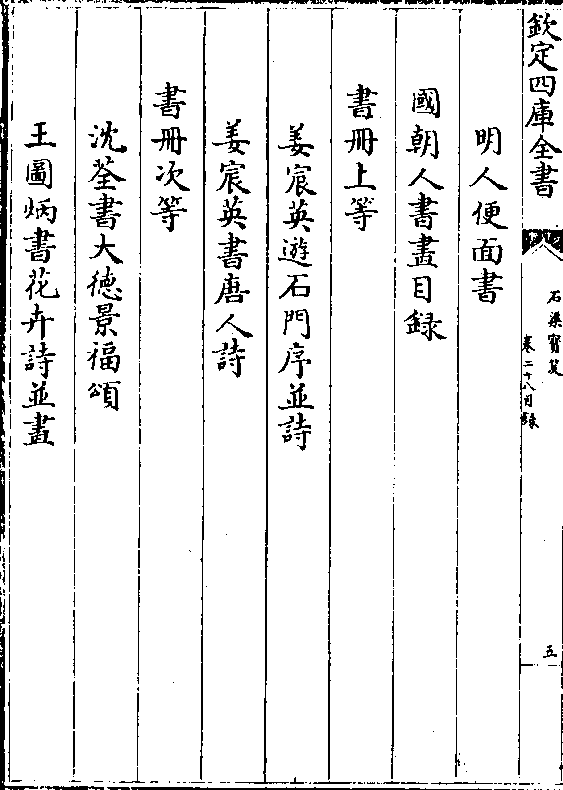 欽定四庫全書
石渠寶笈
卷二十八目錄
五
明人便面書
國朝人書畫目録
書冊上等
姜宸英遊石門序並詩
姜宸英書唐人詩
書冊次等
沈荃書大德景福頌
王圖炳書花卉詩並畫